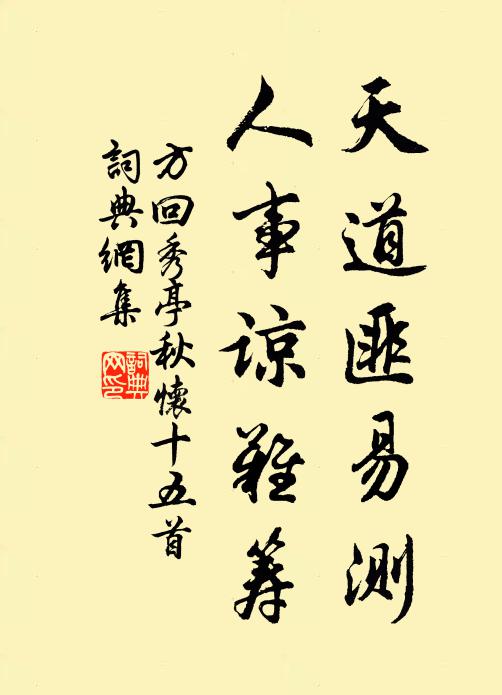 天道匪易測
人事諒難筹
方回秀亭秋懷十五首
詞典網集
詞典
网印